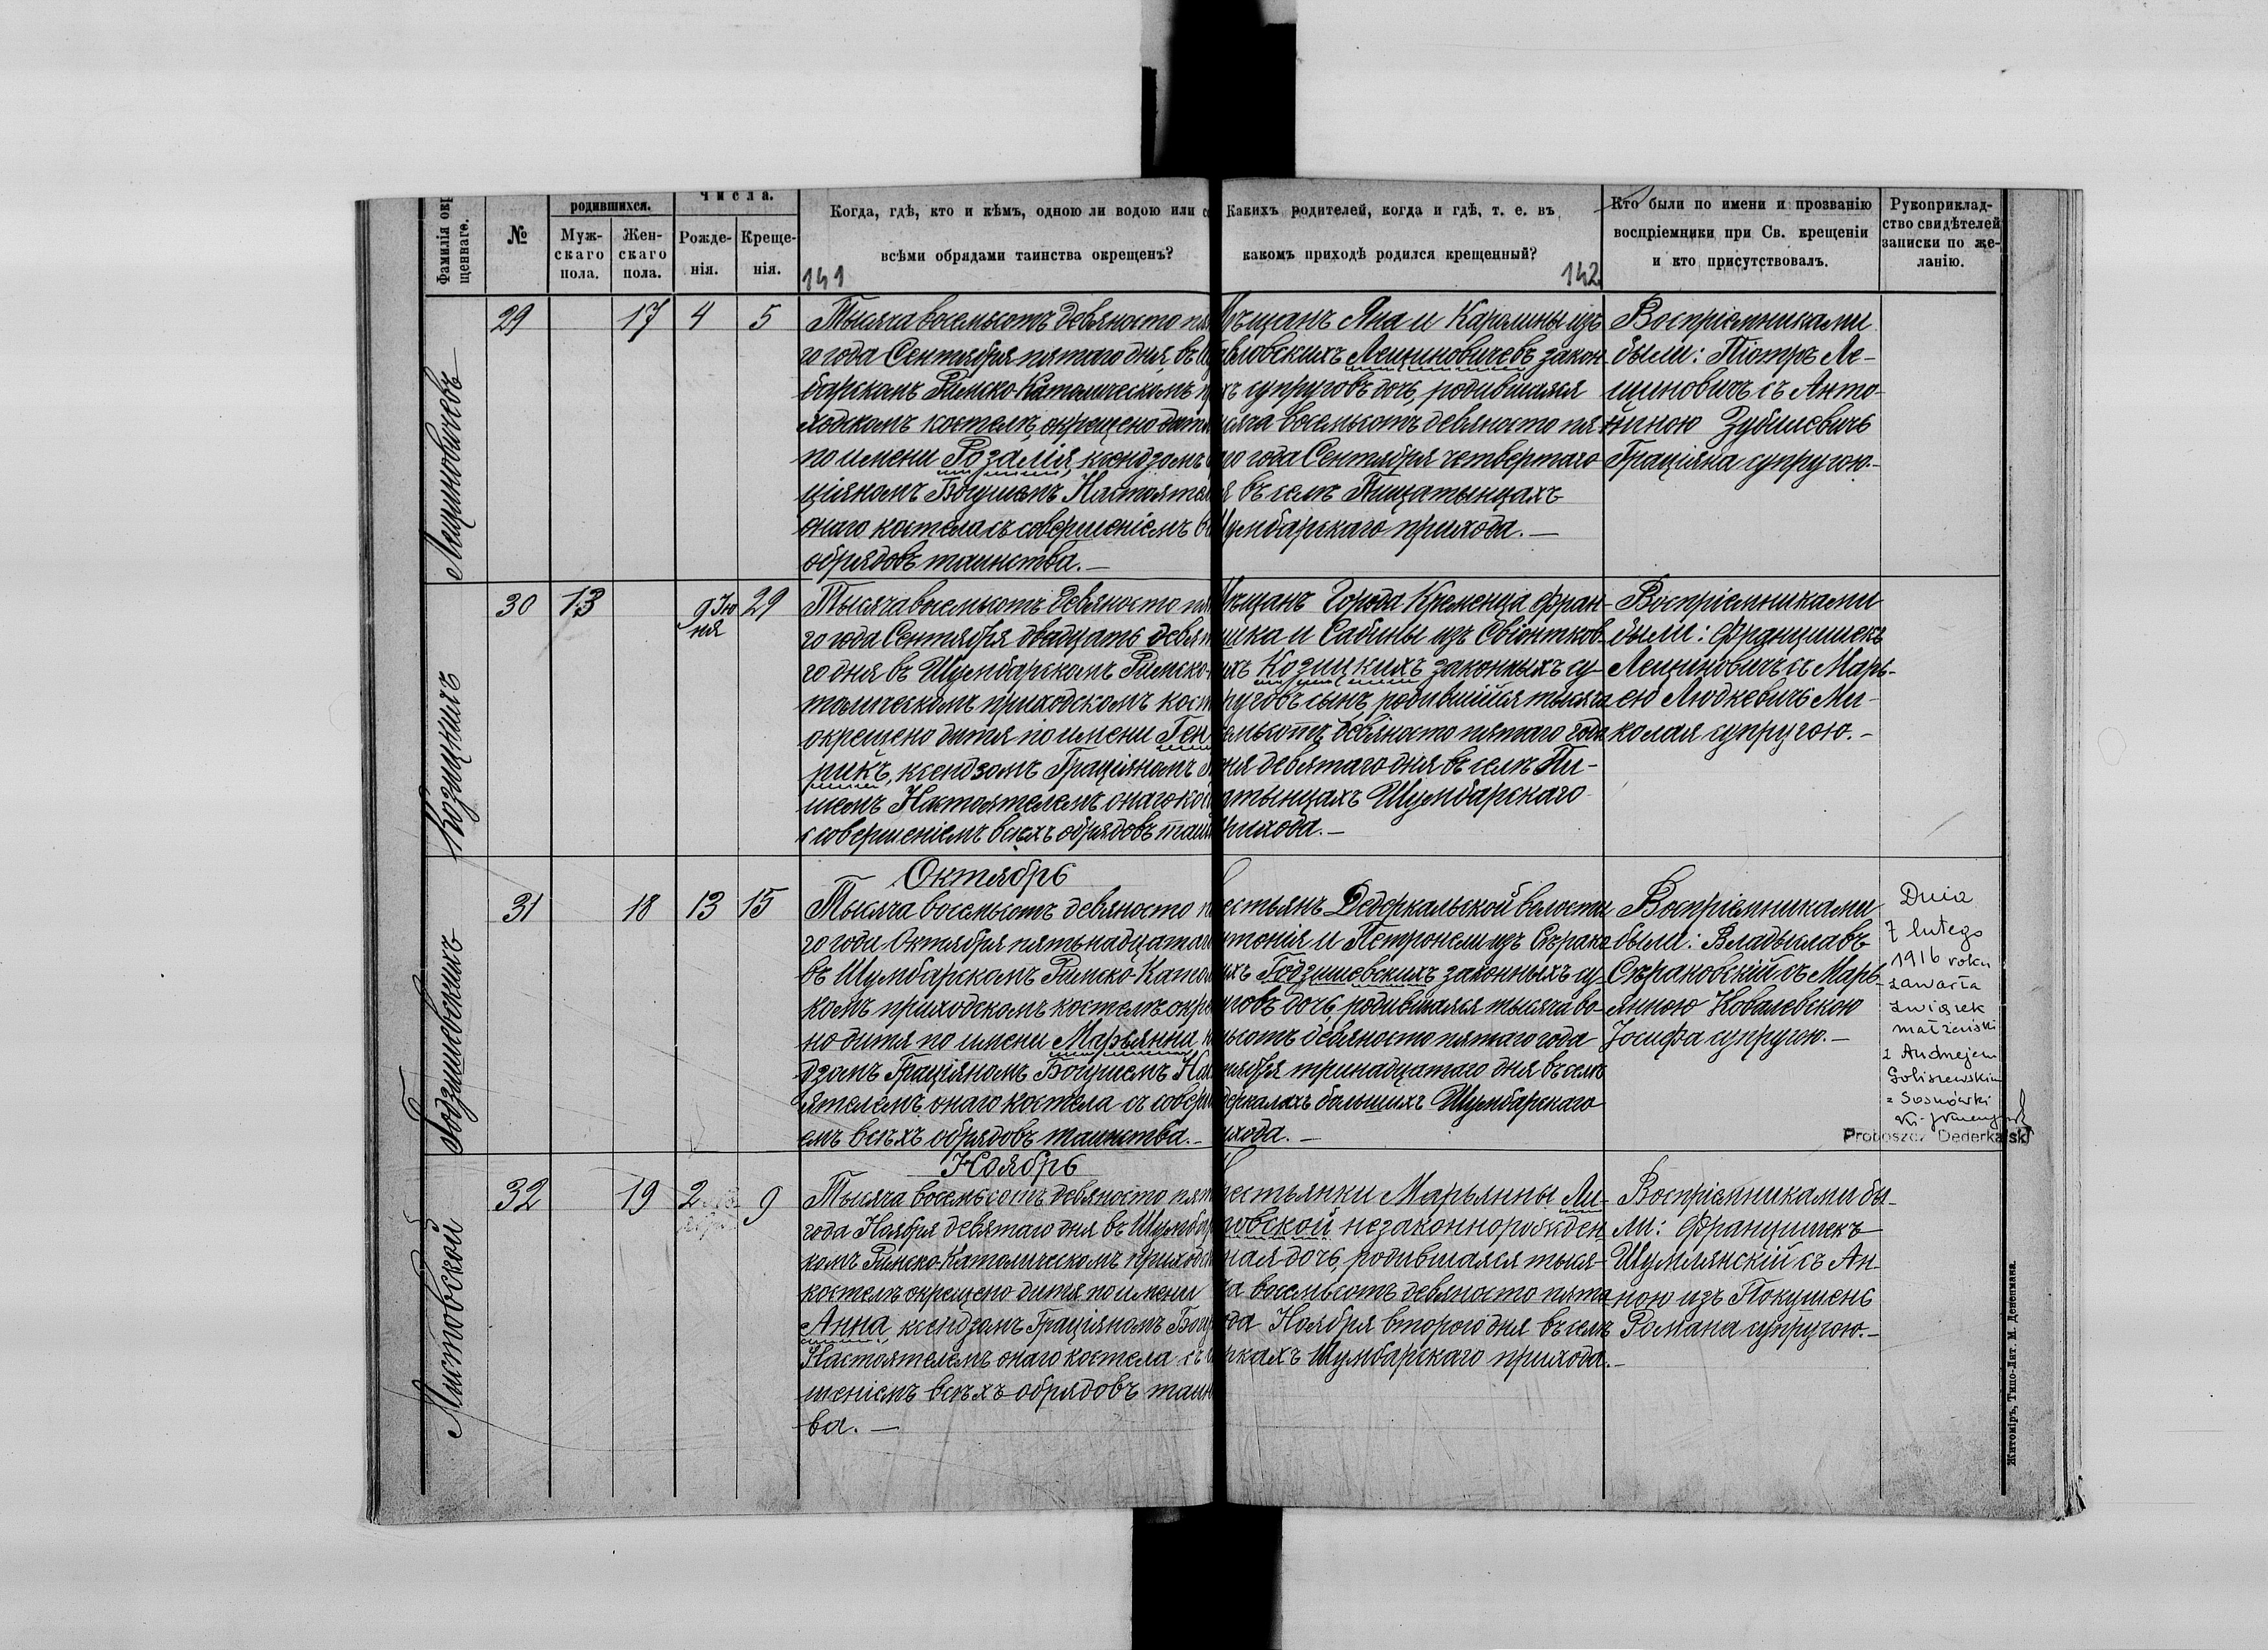 Фамилія окр
щеннаго.
№
родившихся.
Муж-
скаго
пола.
Жен-
скаго
пола.
Числа.
Рожде-
нія.
Креще-
нія.
Когда, гдѣ, кто и кѣмъ, одною ли водою или с
всѣми обрядами таинства окрещенъ?
141
Какихъ родителей, когда и гдѣ, т. е. въ
какомъ приходѣ родился крещенный?
142
Кто были по имени и прозванію
воспріемники при Св. крещеніи
и кто присутствовалъ.
Рукоприклад-
ство свидѣтелей
записки по же-
ланію.
Лещиновичевъ
29
17
4
5
Тысяча восемьсотъ девяносто пя
го года Сентября пятаго дня, въ
барскомъ Римско-Католическомъ п
ходскомъ костелѣ, окрещено дит
по имени Розалія, ксендзомъ
ціяномъ Богушемъ Настоятел
онаго костела съ совершеніемъ в
обрядовъ таинства.—
ѣщанъ Яна и Каролины изъ
вловскихъ Лещиновичевъ закон-
хъ супруговъ дочь, родившаяся
яча восемьсотъ девяносто пя
го года Сентября четвертаго
я въ селѣ Пищатынцахъ
умбарскаго прихода.—
Воспріемниками
были: Піотръ Ле-
щиновичъ съ Анто-
ниною Зубилевичъ
Граціяна супругою.—
Козицкихъ
30
13
9 Ію
ня
29
Тысяча восемьсотъ девяносто пя
го года Сентября двадцать девят
го дня въ Шумбарскомъ Римско-
толическомъ приходскомъ кост
окрещено дитя по имени Ген
рикъ, ксендзомъ Граціяномъ
шемъ Настоятелемъ онаго ко
съ совершеніемъ всѣхъ обрядовъ таи
ѣщанъ Города Кременца Фран-
ишка и Сабины изъ Свіонтков
ихъ Козицкихъ законныхъ су-
руговъ сынъ, родившійся тысяча
емьсотъ девяносто пятаго года
ня девятаго дня въ селѣ Пи-
атынцахъ Шумбарскаго
рихода.—
Воспріемниками
были: Францишекъ
Лещиновичъ съ Марь-
ею Людкевичъ Ми-
колая супругою.—
Годзишевскихъ
Октябрь
31
18
13
15
Тысяча восемьсотъ девяносто п
го года Октября пятьнадцатаг
въ Шумбарскомъ Римско-Като
комъ приходскомъ костелѣ окр
но дитя по имени Марьянна к
дзомъ Граціяномъ Богушемъ Нас
ятелемъ онаго костела съ совер
емъ всѣхъ обрядовъ таинства.—
естьянъ Дедоркальской волости
нтонія и Петронели изъ Сѣрако
ихъ Годзишевскихъ законныхъ су-
уговъ дочь, родившаяся тысяча во-
мьсотъ девяносто пятаго года
тября тринадцатаго дня въ селѣ
деркалахъ большихъ Шумбарскаго
ихода.—
Воспріемниками
были: Владыславъ
Сѣраковскій съ Марь-
янною Ковалевскою
Іосифа супругою.—
Dnia
7 lutego
1916 roku
zawarła
związek
małżeński
z Andrzejem
Goliszewskim
z Sosnówki
Proboszcz Dederkalski
Листовской
Ноябрь
32
19
2
9
Тысяча восемьсотъ девяносто пят
года Ноября девятаго дня въ Шумба
комъ Римско-Католическомъ приходс
костелѣ окрещено дитя по имени
Анна, ксендзомъ Граціяномъ Богу
Настоятелемъ онаго костела съ
шеніемъ всѣхъ обрядовъ таин
ва.—
естьянки Марьянны Ли-
товской незаконнорожден-
ная дочь, родившаяся тыся-
ча восемьсотъ девяносто пята
ода Ноября второго дня въ селѣ
ркахъ Шумбарскаго прихода.—
Воспріемниками бы-
ли: Францишекъ
Шумлянскій съ Ан-
ною изъ Покушень
Романа супругою.—
Житоміръ, Типо-Лит. М. Дененмана.